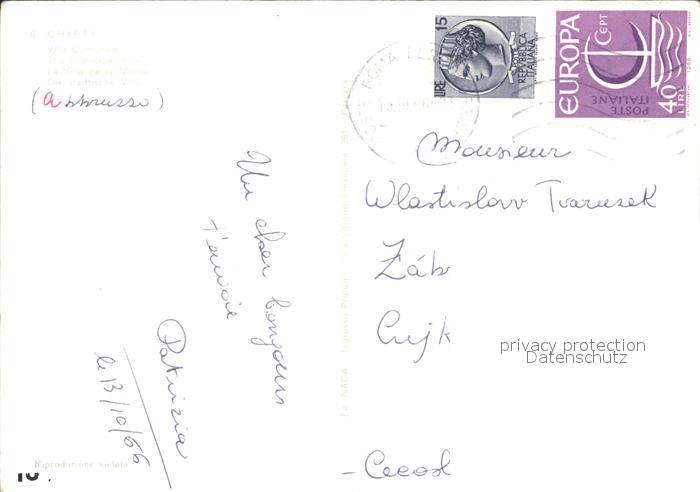 6 CHIETI
Villa Comunale
The Municipal Villa
La Villa de la Mairie
Die städtische Villa
(abbrusso)
LIRE 15
REPVBBLICA
ITALIANA
EUROPA
CEPT
POSTE
ITALIANE
40
LIRE
ROMA
Monsieur
Wlastislow Tvarusek
Záb
privacy protection
Datenschutz
Un cher bonjour
t'envoie
Patrizia
le 13/10/66
Ed. NACA
Riproduzione vietata